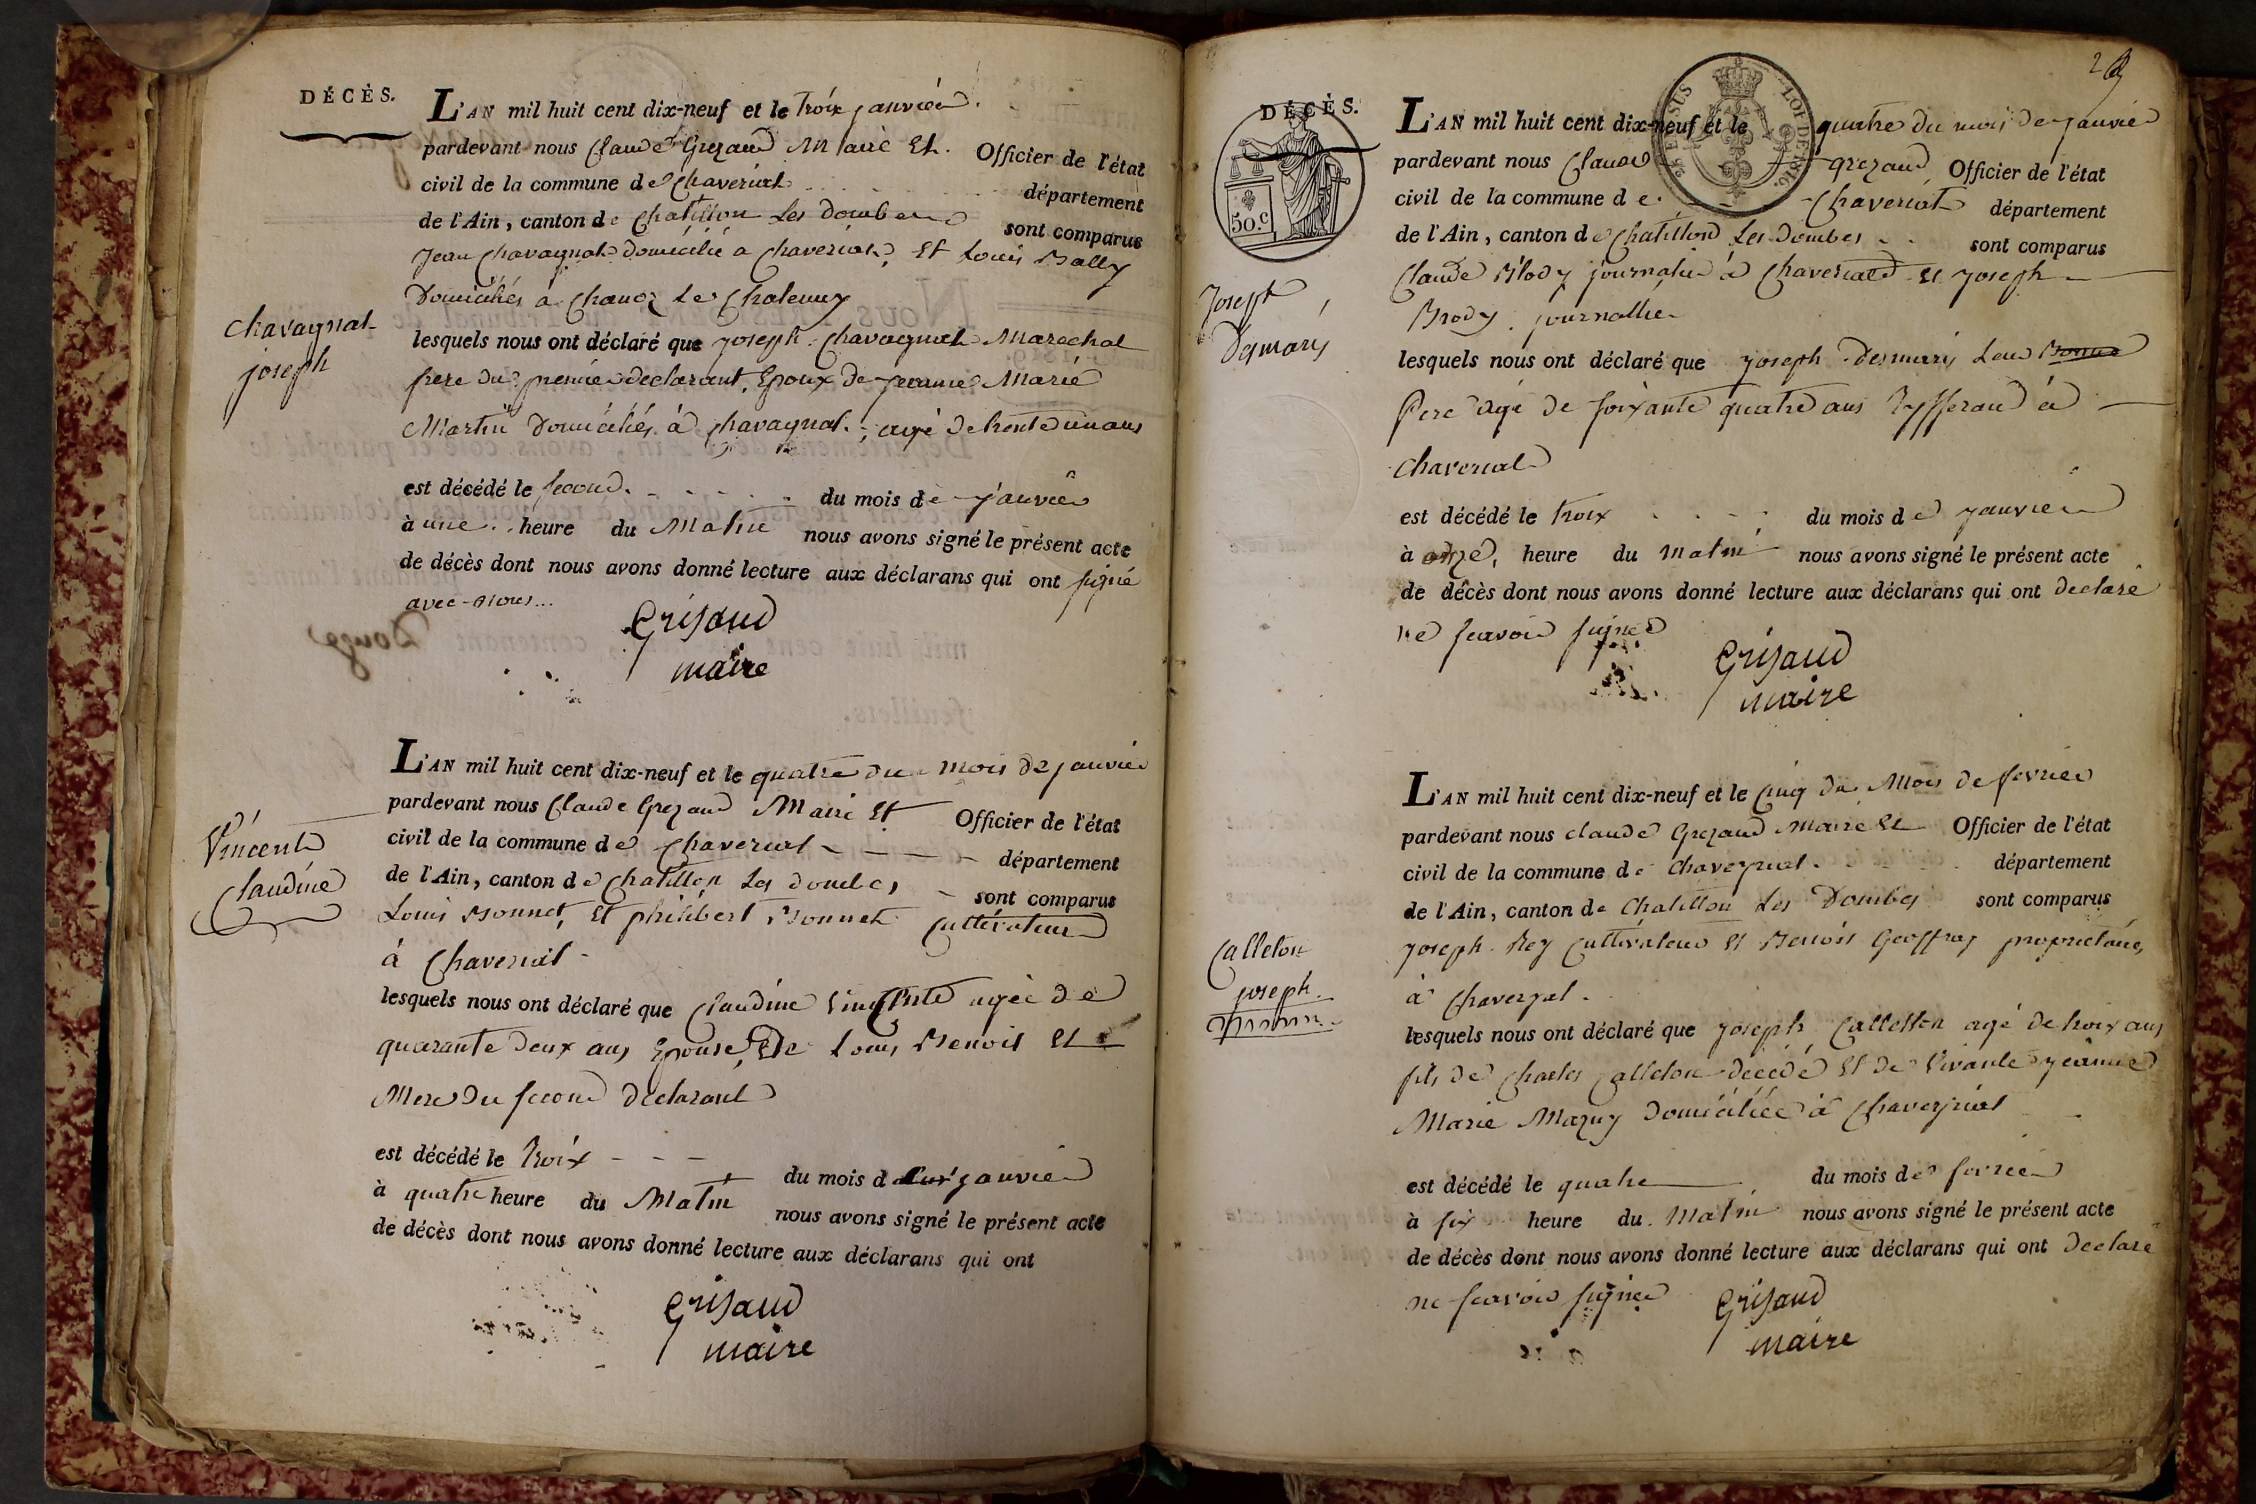 DÉCÈS.
L'AN mil huit cent dix-neuf et le troix janvier
pardevant nous Claude Grezaud Maire Et Officier de l'état
civil de la commune de Chaveriat département
de l'Ain, canton de Chatillon Les Dombes sont comparus
Jean Chavagnat domicilié a Chaveriat, Et Louis Bally
Domiciliés à Chanoz Le Chatenay
Chavagnat
joseph
lesquels nous ont déclaré que joseph Chavagnat Marechal
frere du premier declarant, Epoux de jeanne Marie
Martin Domiciliés à chavagnat, agé de trente un ans
est décédé le second du mois de janvier
à une heure du Matin nous avons signé le présent acte
de décès dont nous avons donné lecture aux déclarans qui ont signé
avec nous...
Grisaud
maire
L'AN mil huit cent dix-neuf et le quatre du mois de janvier
pardevant nous Claude Grezaud Maire Et Officier de l'état
civil de la commune de Chaveriat département
de l'Ain, canton de Chatillon Les Dombes sont comparus
Vincent
Claudine
Louis Bonnet, Et philibert Bonnet Cultivateur
à Chaveriat
lesquels nous ont déclaré que Claudine agée de
quarante deux ans Epouse De Louis Benoit Et
Mere du second declarant
est décédé le troix du mois de janvier
à quatre heure du Matin nous avons signé le présent acte
de décès dont nous avons donné lecture aux déclarans qui ont
Grisaud
maire
DÉCÈS.
50.C
LOI DE 1816.
L'AN mil huit cent dix-neuf et le quatre du mois de janvier
pardevant nous Claude grezaud Officier de l'état
civil de la commune de Chaveriat département
de l'Ain, canton de Chatillon Les Dombes sont comparus
Claude Blody journalier à Chaveriat Et joseph
Brody journallier
Joseph
Desmaris
lesquels nous ont déclaré que joseph Desmaris Leur
Pere agé de soixante quatre ans à
Chaveriat
est décédé le troix du mois de janvier
à onze heure du matin nous avons signé le présent acte
de décès dont nous avons donné lecture aux déclarans qui ont declaré
ne scavoir signer
Grisaud
maire
L'AN mil huit cent dix-neuf et le Cinq du Mois de fevrier
pardevant nous claude Grezaud Maire Et Officier de l'état
civil de la commune de Chaveyriat département
de l'Ain, canton de Chatillon Les Dombes sont comparus
joseph Rey Cultivateur Et Benoit Geoffray proprietaire,
à Chaveryat
Calleton
joseph
lesquels nous ont déclaré que joseph Calletton agé de troix ans
fils de Charles Calleton decedé Et de Vivante jeanne
Marie Mazuy Domiciliée à Chaveyriat
est décédé le quatre du mois de fevrier
à six heure du Matin nous avons signé le présent acte
de décès dont nous avons donné lecture aux déclarans qui ont declaré
ne scavoir signer
Grisaud
maire